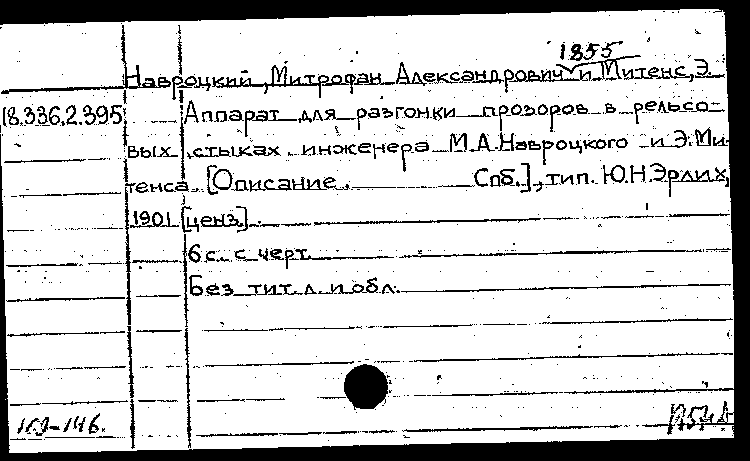 1855
Навроцкий, Митрофан Александрович и Митенс, Э.
18.336.2.395 Аппарат для разгонки прозоров в рельсо-
вых стыках инженера М.А. Навроцкого и Э. Ми-
тенса. [Описание. Спб.], тип. Ю.Н. Эрлих,
1901 [ценз.].
6 с. с черт.
Без тит. л. и обл.